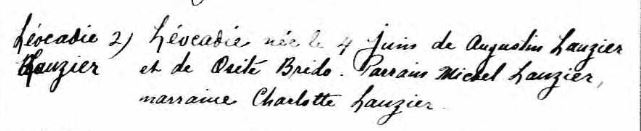 Léocadie 2) Léocadie née le 4 juin de Augustin Lauzier
Lauzier et de Osite Brido. Parrain Michel Lauzier,
marraine Charlotte Lauzier.